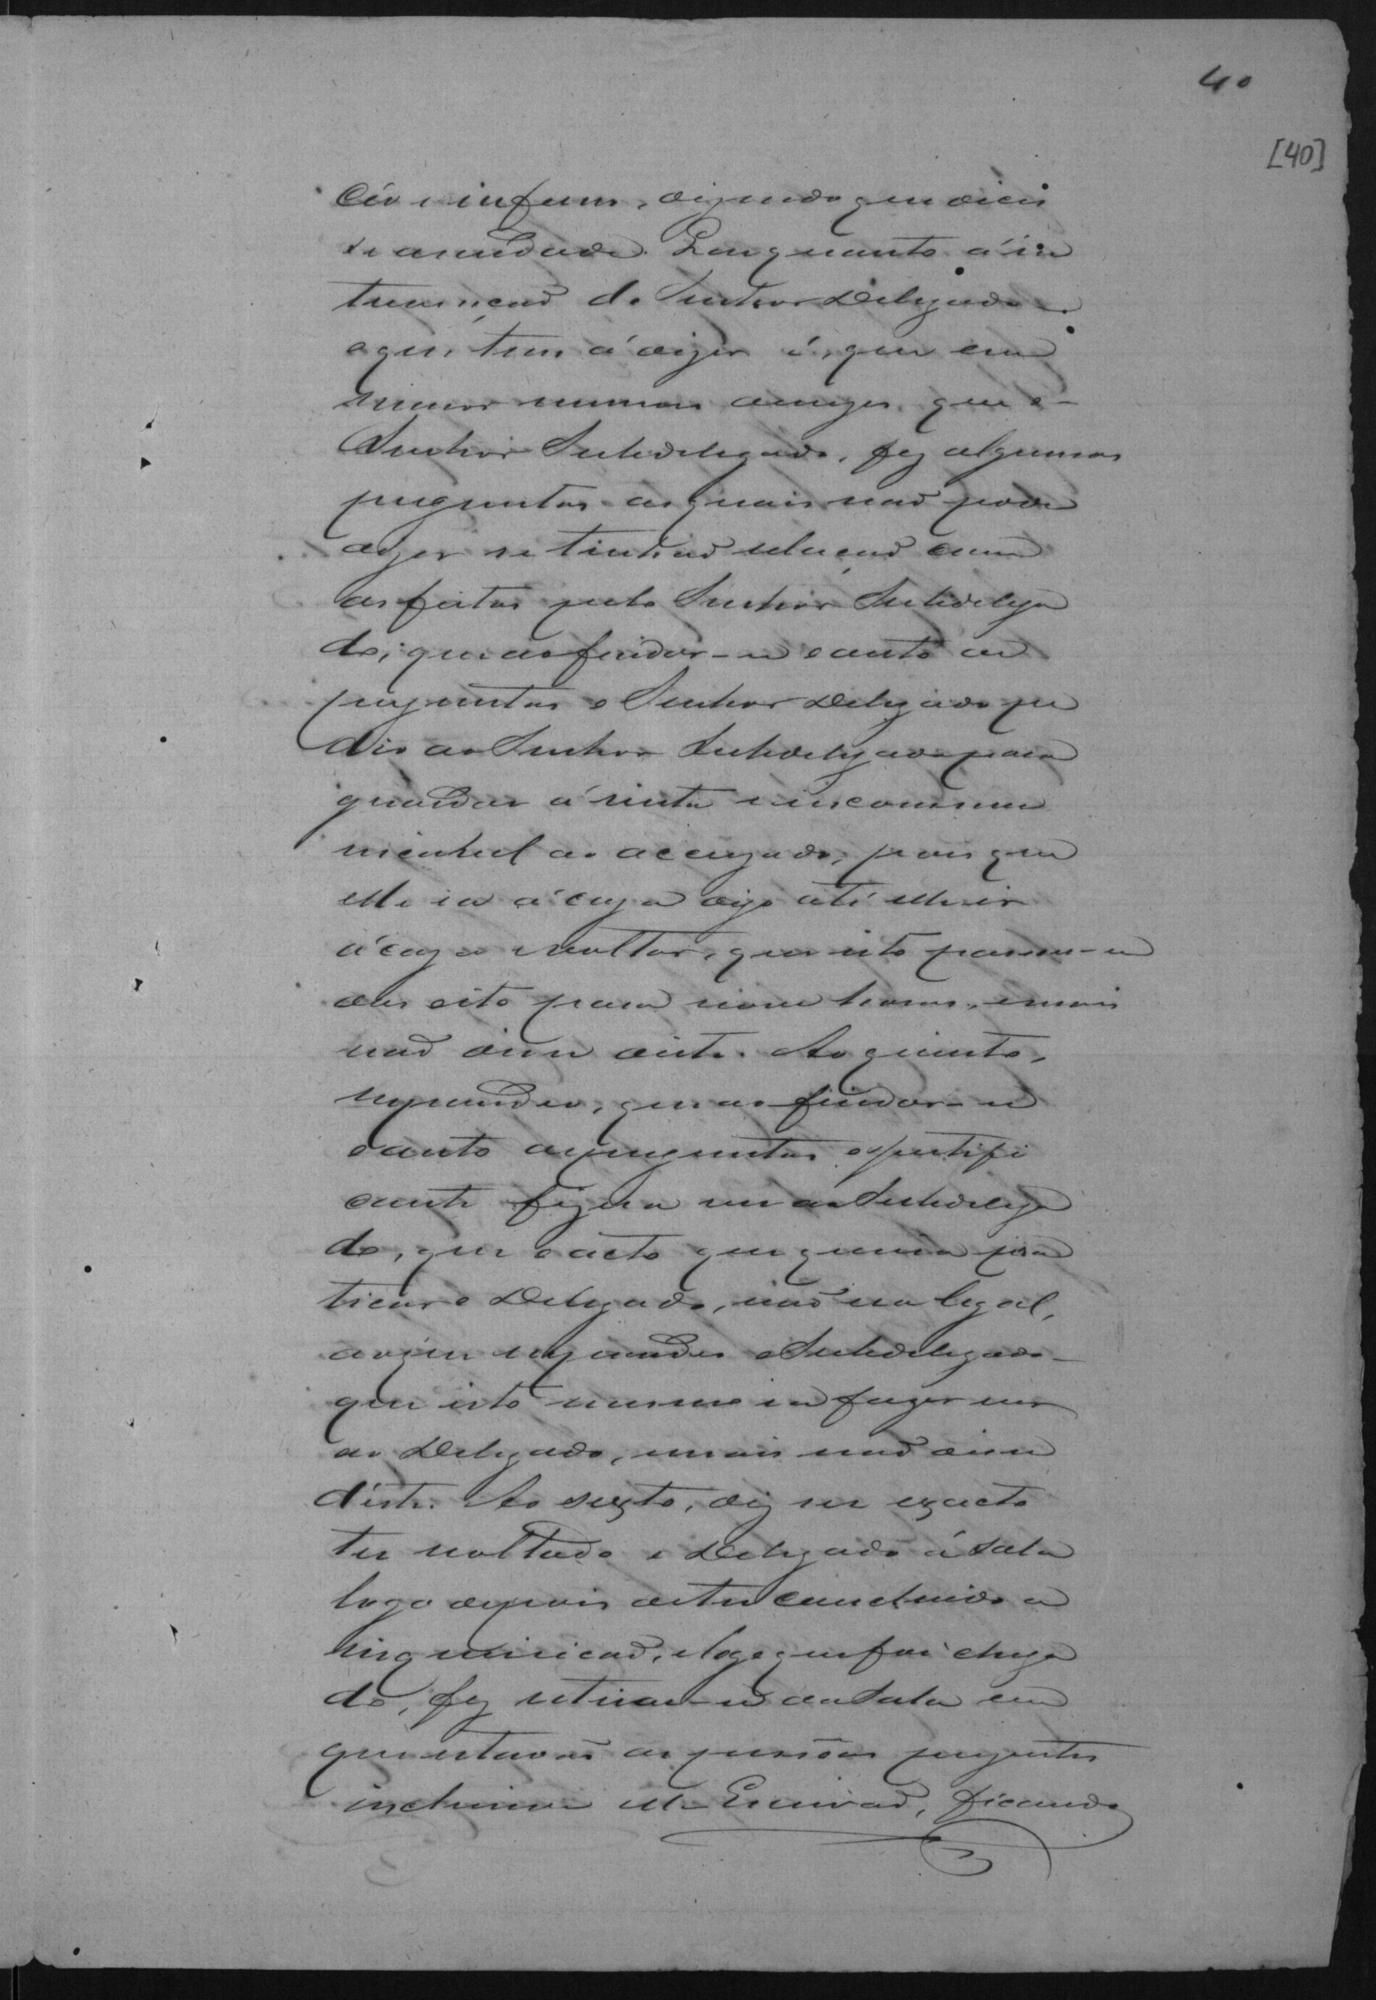 40
[40]
cio e infame, dizendo que dicis
se a verdade. Em quanto á in
tervenção do Senhor Delegado o
que tem á dizer é, que em
numero amigos que o
Senhor Subdelegado, fez algumas
perguntas as quais não pode
dizer se tinhão relação com
as feitas pelo Senhor Subdelega
do; que ao findar-se o auto de
perguntas o Senhor Delegado pe
dio ao Senhor Subdelegado para
guardar á vista e incommu
nicavel ao accuzado, pois que
elle ia á caza digo até elle ir
á caza e voltar, que isto passou-se
das oito para nove horas, e mais
não disse deste. Ao quinto,
respondeo, que ao findar-se
o auto de perguntas o justifi
cante fizera ver ao Subdelega
do, que o acto que queria pra
ticar o Delegado, não era legal,
ao que respondeo o Subdelegado
que isto mesmo ia fazer ver
ao Delegado, e mais não disse
deste. Ao sexto, diz ser exacto
ter voltado o Delegado á sala
logo depois de ter concluido a
inquirição, e logo que foi chega
do, fez retirar-se da sala em
que estavão as pessôas prezentes
inclusive elle Escrivão, ficando